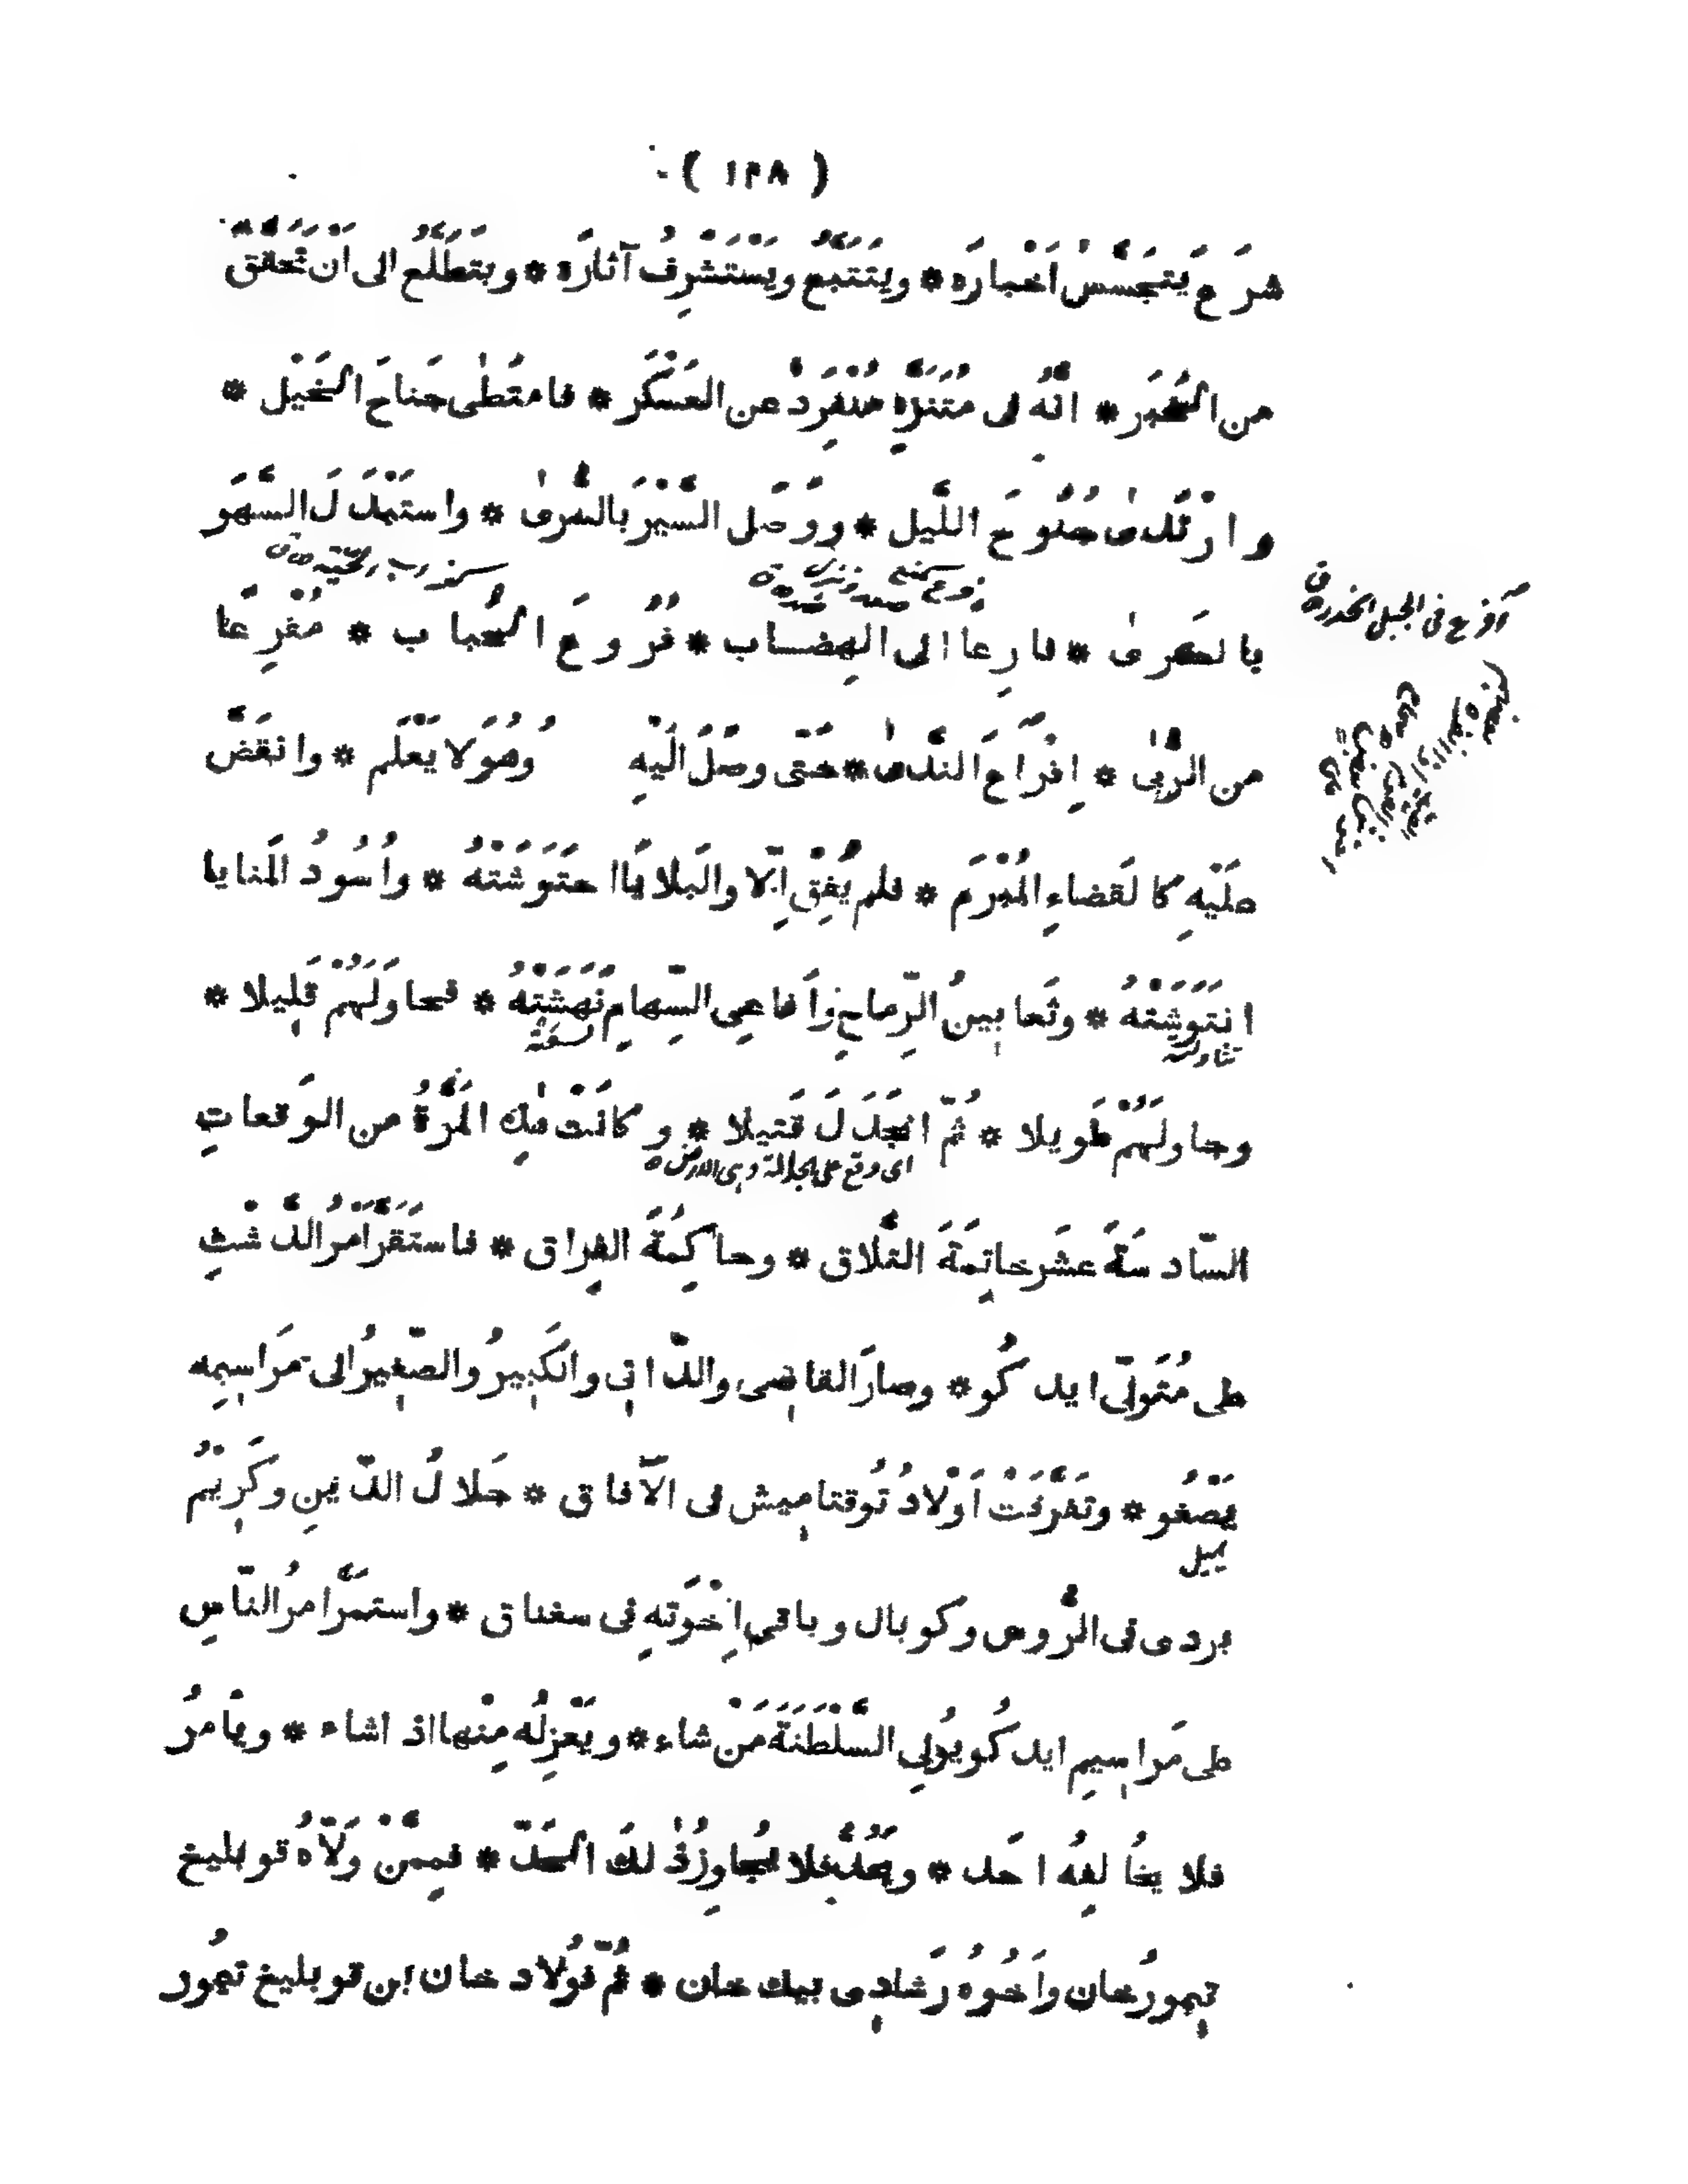 ( ١٣٨ )
شَرَعَ يَتَجَسَّسُ اَخْبارَه * ويَتَتَبَّعُ ويَسْتَشْرِفُ آثارَه * ويَتَطَلَّعُ الى اَنْ تَحَقَّقَ
من الخَبَر * انَّهُ فى مُتَنَزَّهٍ مُنْفَرِدٍ عن العَسْكَر * فامتَطٰى جَناحَ الخَيْل *
وارْتَدٰى جُنُوحَ اللَّيل * ووَصَل السَّيْرَ بالسُّرٰى * واستَبْدَلَ السَّهَرَ
بالكَرٰى * فارِعا الى الهِضاب * فُرُوعَ الحَباب * مُفْرِعًا
من الرُّبٰى * اِفْراعَ النَّدٰى * حَتّى وصَلَ الَيْهِ وهُوَ لا يَعْلَم * وانقَضَّ
علَيْهِ كالقَضاءِ المُبْرَم * فلم يُفِقْ اِلّا والبَلايا احتَوَشَتْهُ * واُسُودُ المَنايا
انتَوَشَتْهُ * وثَعابينُ الرِّماحِ واَفاعِى السِّهامِ نَهَشَتْهُ * فحاوَلَهُمْ قَلِيلا *
تناولته
وجاولَهُمْ طَويلا * ثُمّ انجَدَلَ قَتيلا * وكانَتْ هٰذِهِ المَرَّةُ من الوَقعاتِ
اى وقع على الجدالة وهى الارض
السّادسَةَ عشَر خاتِمَةَ التَّلاق * وحاكِمَةَ الفِراق * فاستَقَرَّ اَمْرُ الدَّشْتِ
على مُتَوَلّى ايدكُو * وصارَ القاصِى والدّانِى والكَبِيرُ والصّغِيرُ الى مَراسِيمِه
يَصْغُو * وتَفَرَّقَتْ اَوْلادُ تُوقتامِيش فى الآفاق * جَلالُ الدّينِ وكَرِيْمُ
يميل
بردى فى الرُّوس وكوبال وباقى اِخْوَتِهِ فى سغناق * واستمَرَّ امرُ النّاسِ
على مَراسِيمِ ايدكُو يُولِى السَّلْطَنَةَ مَنْ شاء * ويَعْزِلُه مِنْها اذا شاء * ويأمرُ
فلا يخالِفُه احَد * ويَحُدُّ فلا يُجاوِزُ ذٰلكَ الحَدّ * فمِمَّنْ وَلّاهُ قوبليغ
تيمورُخان واَخُوهُ رَشادِى بيك خان * ثُمّ فُولاد خان ابن قوبليغ تيمُور